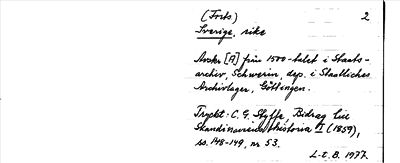 (Forts) 2
Sverige, rike
Avskr [A] från 1500-talet i Staats-
archiv, Schwerin, dep. i Staatliches
Archivlager, Göttingen.
Tryckt: C.G. Styffe, Bidrag till
Skandinaviens historia II (1859),
ss. 148-149, nr 53.
L-t. B. 1977.